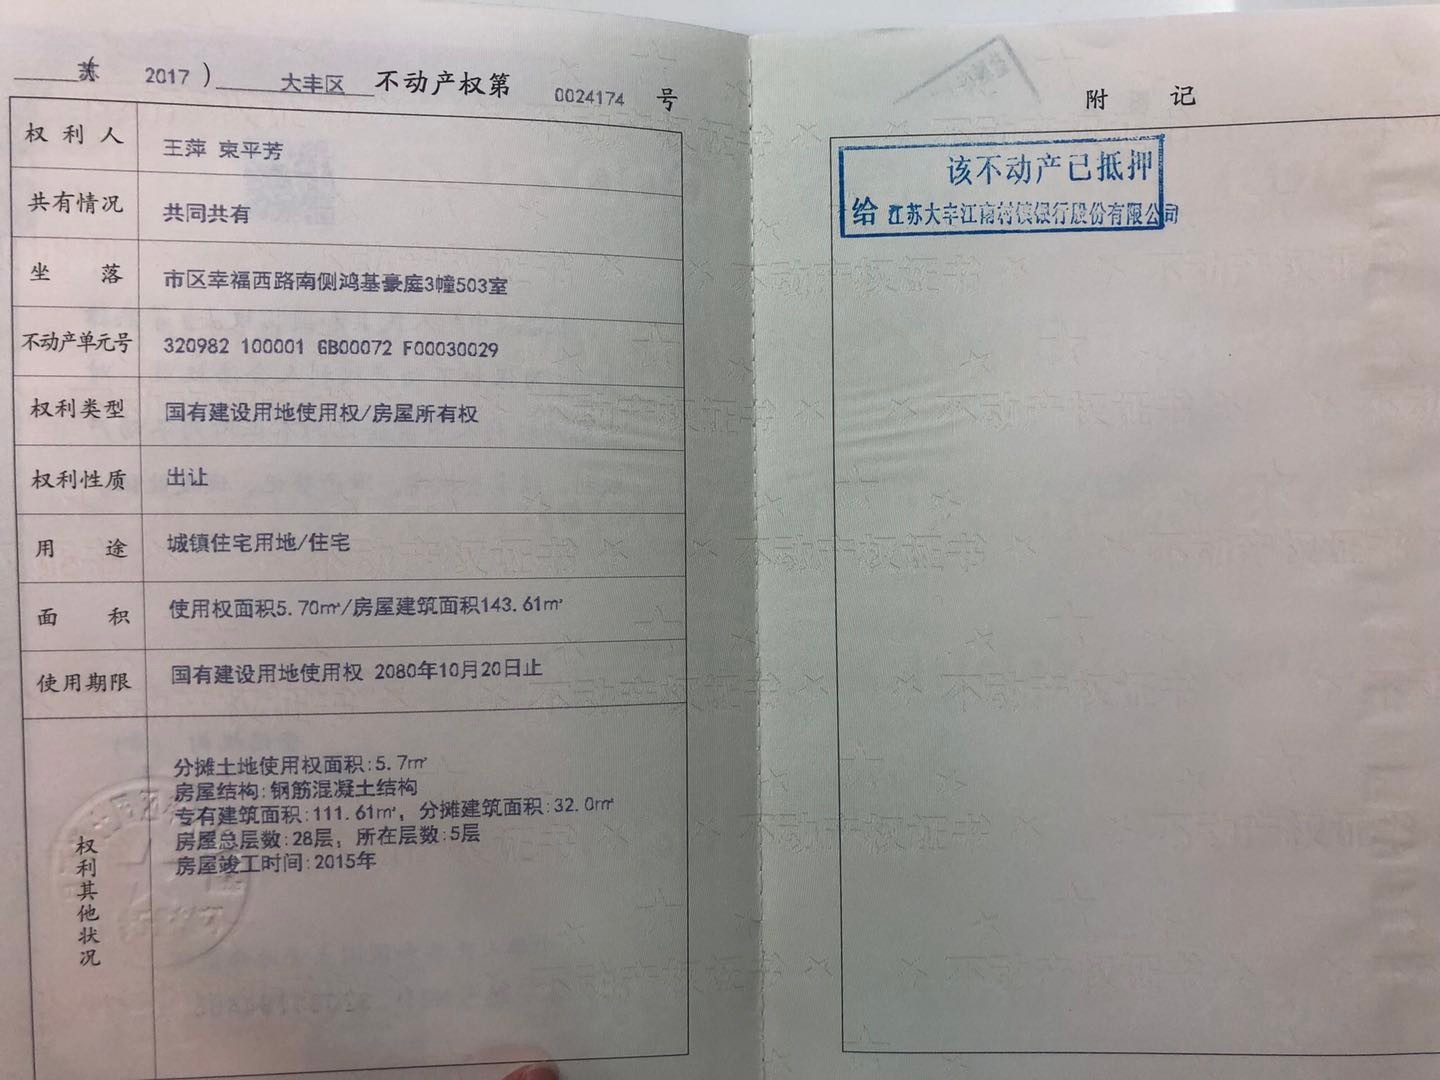 苏(2017)大丰区不动产权第0024174号
权利人 王萍 束平芳
共有情况 共同共有
坐落 市区幸福西路南侧鸿基豪庭3幢503室
不动产单元号 320982 100001 GB00072 F00030029
权利类型 国有建设用地使用权/房屋所有权
权利性质 出让
用途 城镇住宅用地/住宅
面积 使用权面积5.70㎡/房屋建筑面积143.61㎡
使用期限 国有建设用地使用权 2080年10月20日止
权利其他状况
分摊土地使用权面积:5.7㎡
房屋结构:钢筋混凝土结构
专有建筑面积:111.61㎡，分摊建筑面积:32.0㎡
房屋总层数:28层，所在层数:5层
房屋竣工时间:2015年
附记
该不动产已抵押
给 江苏大丰江南村镇银行股份有限公司